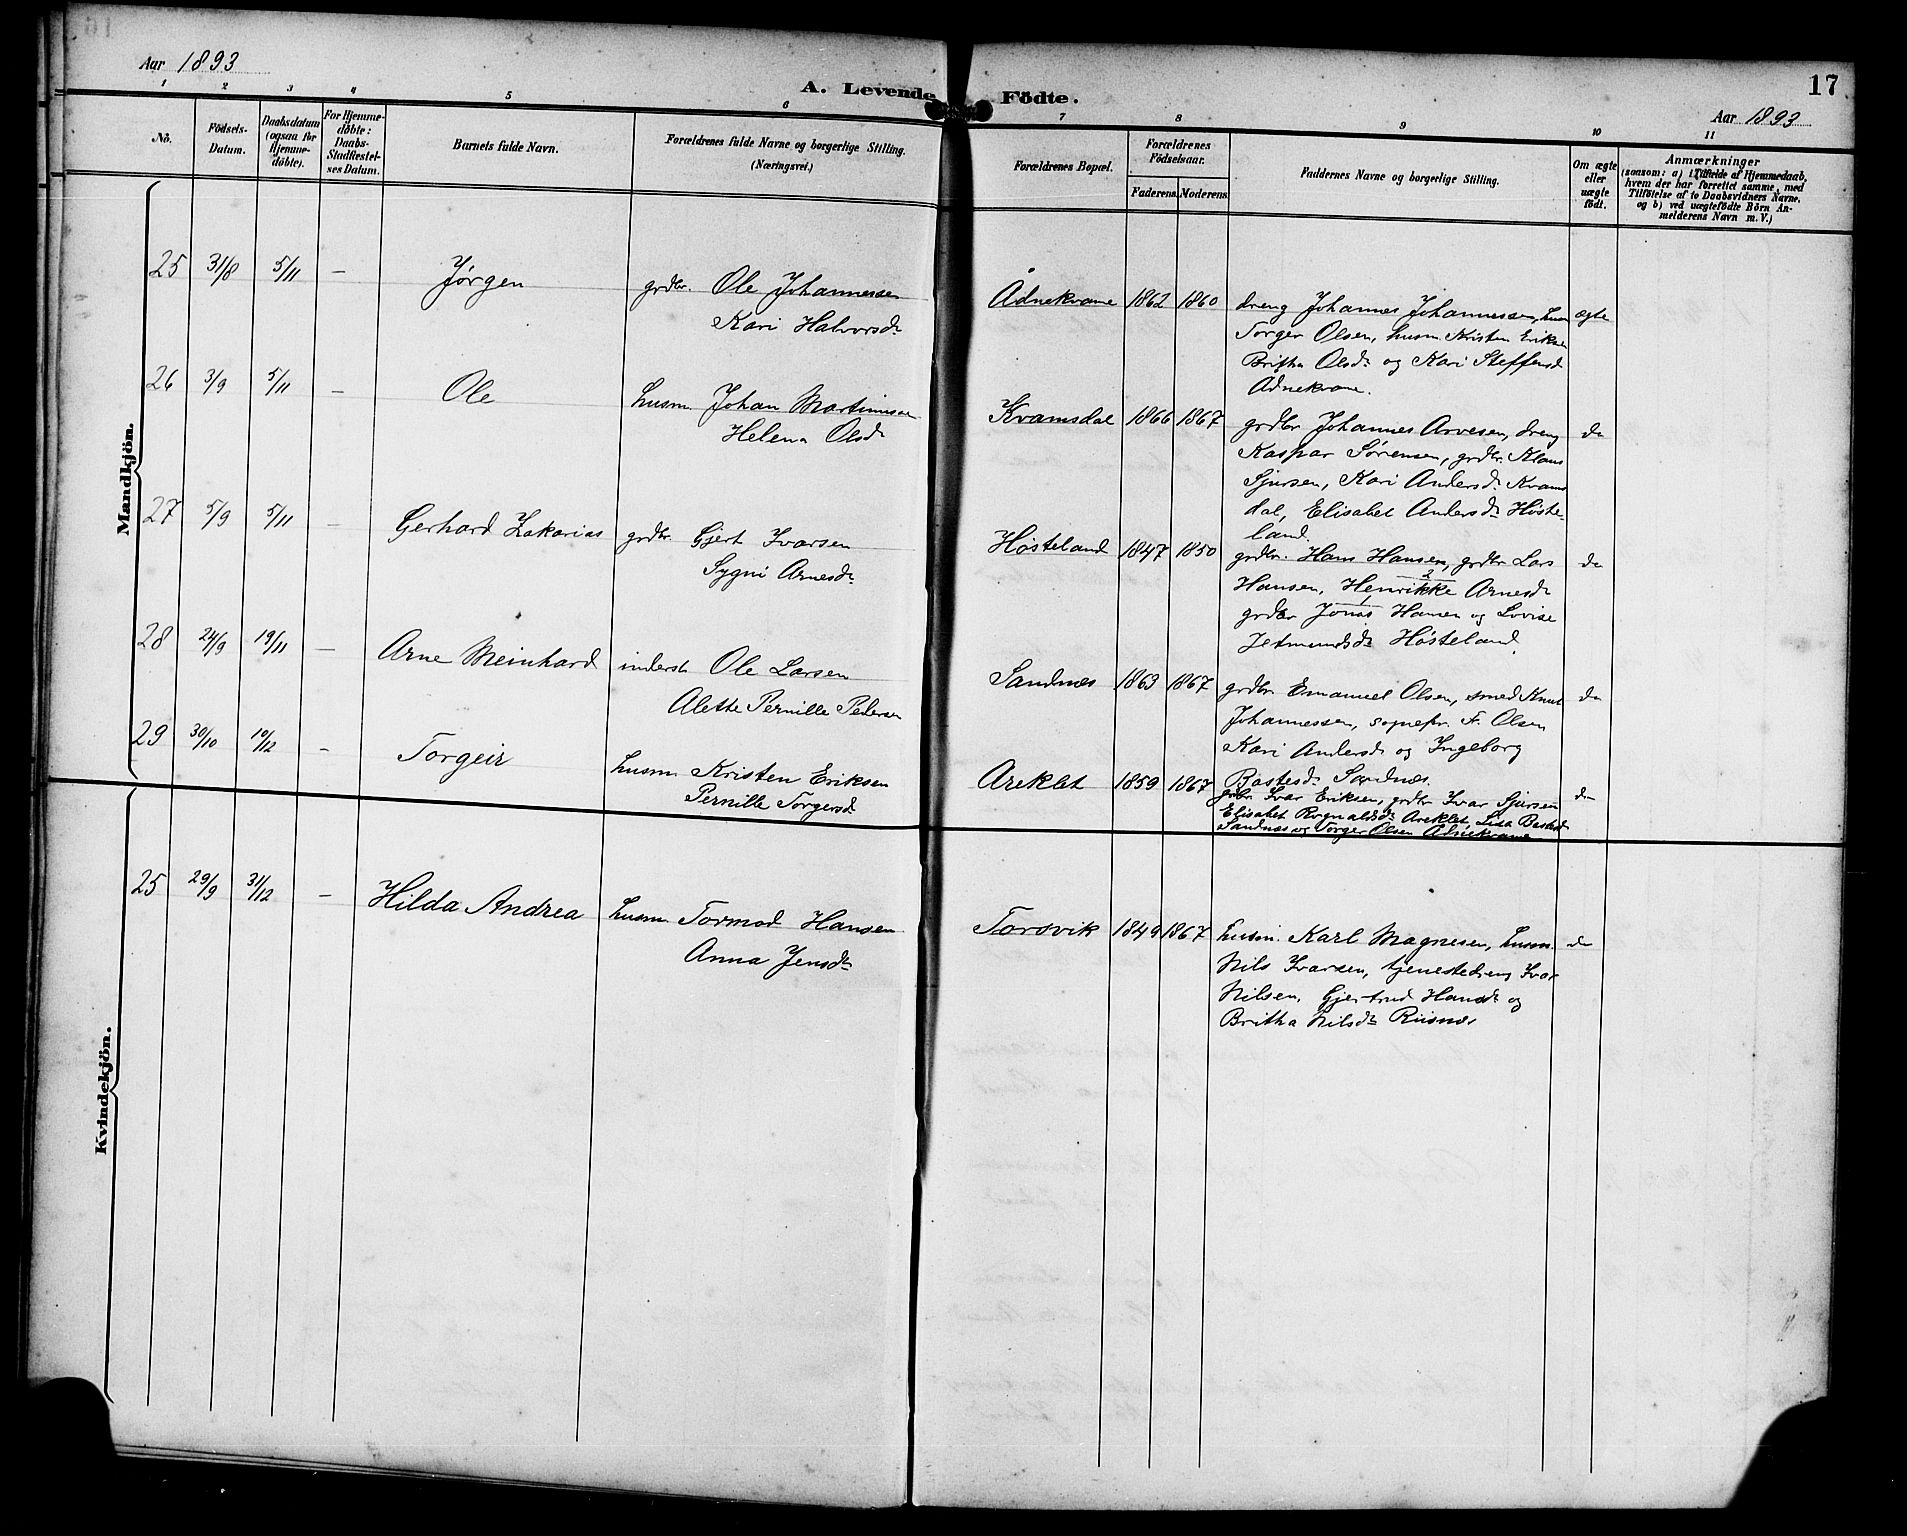 Aar 1893
A. Levende Födte.
17
Aar 1893
1 2 3 4 5 6 7 8 9 10 11
No.
Födsels-Datum.
Daabsdatum (ogsaa for Hjemmedöbte).
For Hjemmedöbte: Daabs-Stadfæstelses Datum.
Barnets fulde Navn.
Forældrenes fulde Navne og borgerlige Stilling. (Næringsvei.)
Forældrenes Bopæl.
Forældrenes Födselsaar.
Faderens. Moderens.
Faddernes Navne og borgerlige Stilling.
Om ægte eller uægte födt.
Anmærkninger
(saasom: a) i Tilfælde af Hjemmedaab, hvem der har forrettet samme, med Tilföielse af to Daabsvidners Navne, og b) ved uægtefödte Börn Anmelderens Navn m. V.)
Mandkjön.
25 31/8 5/11 – Jørgen grdbr. Ole Johannessen
Kari Halvorsdr
Ådnekvame 1862 1860 dreng Johannes Johannessen, husm ægte
Torger Olsen, husm. Kristen Eriksen
Britha Olsdr og Kari Steffensd
Ådnekvame.
26 3/9 5/11 – Ole husm. Johan Martinusen
Helena Olsdr
Kvamsdal 1866 1867 grdbr Johannes Arvesen, dreng do
Kaspar Sørensen, grdbr. Klaus
Sjursen, Kari Andersdr Kvams
dal, Elisabet Andersdr Høste-
land.
27 5/9 5/11 – Gerhard Zakarias grdbr. Gjert Ivarsen
Sygni Arnesdr
Høsteland 1847 1850 grdbr. Hans Hansen, grdbr Lars do
Hansen, Henrikke Arnesdr
grdbr Jonas Hansen og Lovise
Jetmundsdr Høsteland.
28 24/9 19/11 – Arne Meinhard inderst Ole Larsen
Alette Pernille Pedersen
Sandnæs 1863 1867 grdbr. Emanuel Olsen, smed Knut do
Johannessen, sognepr. Fr. Olsen
Kari Andersdr og Ingeborg
Bastesdr Sandnæs.
29 30/10 10/12 – Torgeir husm Kristen Eriksen
Pernille Torgersdr
Areklet 1859 1867 grdbr. Ivar Eriksen, grdbr Ivar Sjursen do
Elisabet Rognaldsdr Areklet, Lisa Bastesdr
Sandnæs og Torger Olsen Ådnekvame
Kvindekjön.
25 29/9 31/12 – Hilda Andrea husm Tormod Hansen
Anna Jensdr
Torsvik 1849 1867 husm. Karl Magnesen, husm. do
Nils Ivarsen, tjenestedreng Ivar
Nilsen, Gjertrud Hansdr og
Britha Nilsdr Risnæs